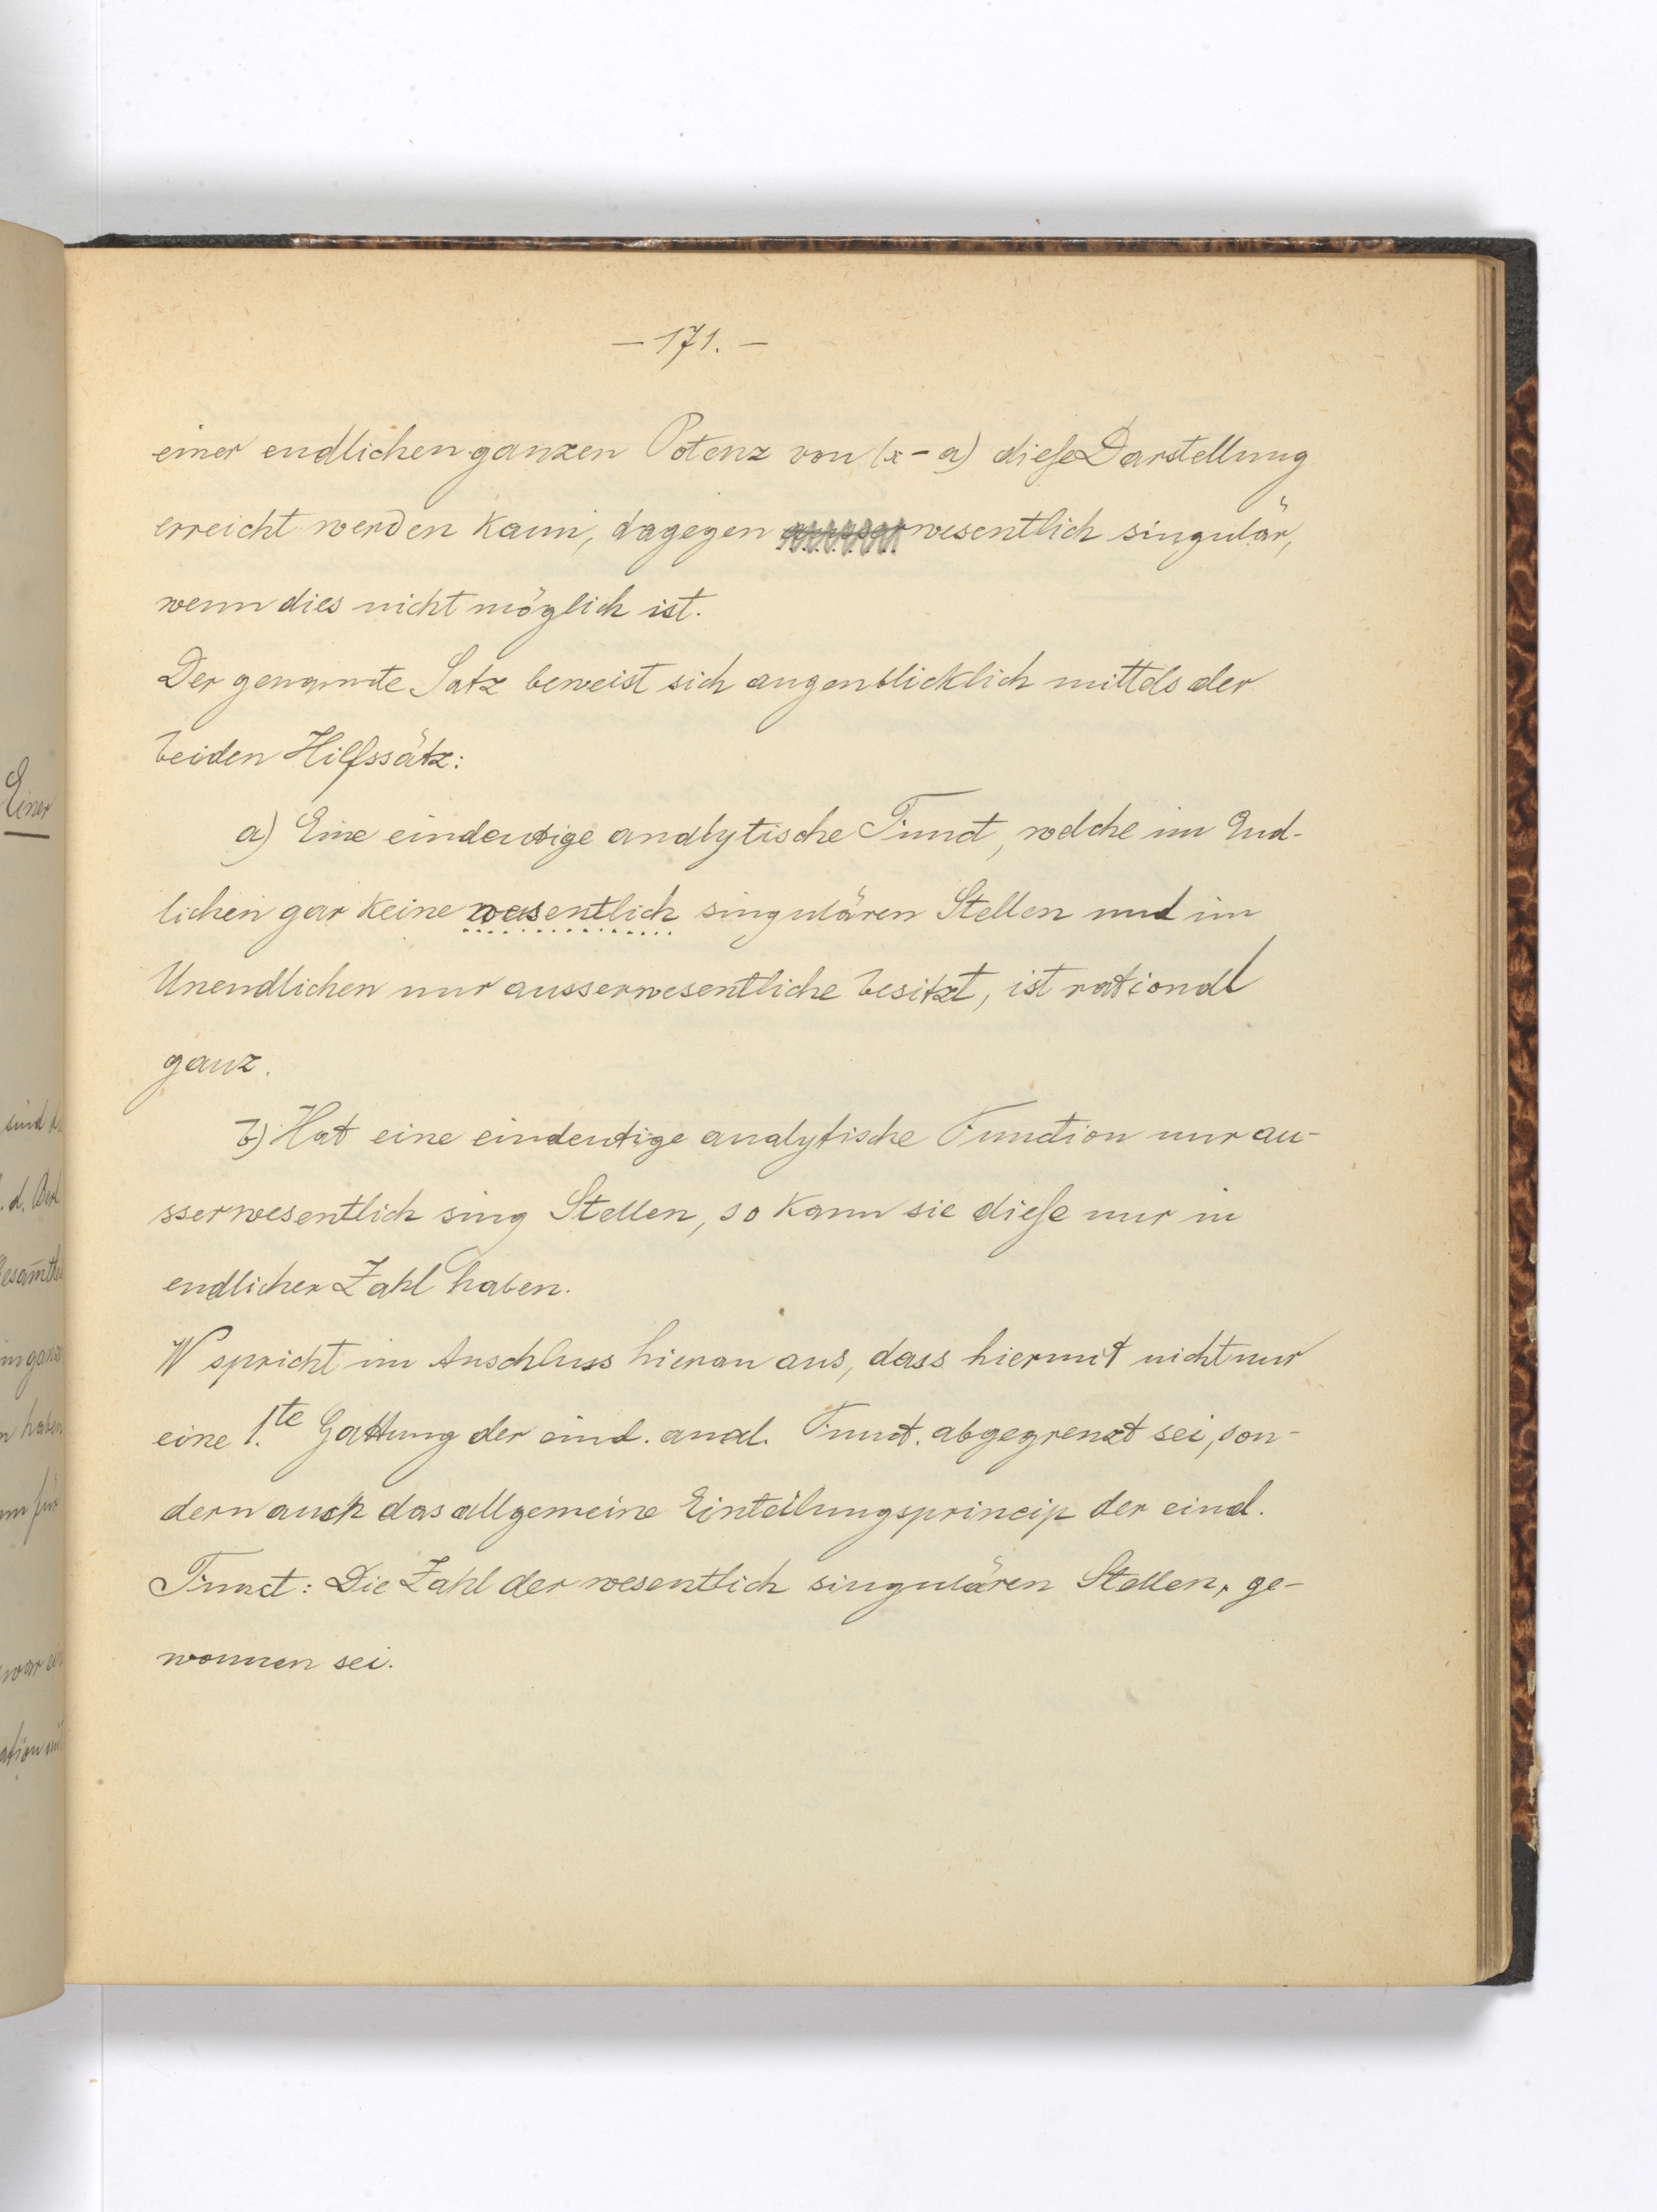 — 171. —
einer endlichen ganzen Potenz von (x - a) diese Darstellung
erreicht werden kann, dagegen ausser wesentlich singulär,
wenn dies nicht möglich ist.
Der genannte Satz beweist sich augenblicklich mittels der
beiden Hilfssätz:
a) Eine eindeutige analytische Funct, welche im End-
lichen gar keine wesentlich singulären Stellen und im
Unendlichen nur ausserwesentliche besitzt, ist rational
ganz.
b) Hat eine eindeutige analytische Function nur au-
sserwesentlich sing Stellen, so kann sie diese nur in
endlicher Zahl haben.
W spricht im Anschluss hieran aus, dass hiermit nicht nur
eine 1.te Gattung der eind. anal. Funct. abgegrenzt sei, son-
dern auch das allgemeine Einteilungsprincip der eind.
Funct: Die Zahl der wesentlich singulären Stellen, ge-
wonnen sei.
Einer